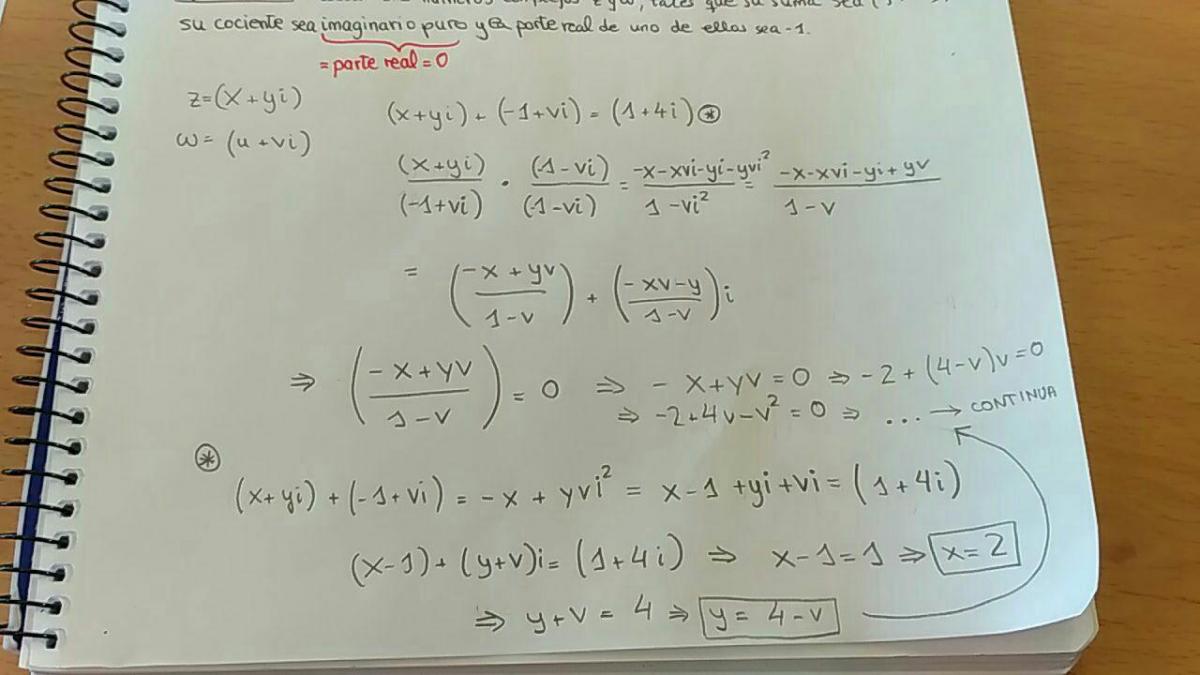 números complejos z y ω, tales que su suma sea
su cociente sea imaginario puro y la parte real de uno de ellos sea -1.
= parte real = 0
z=(x+yi)
(x+yi) + (-1+vi) = (1+4i) ⊛
ω= (u+vi)
(x+yi)/(-1+vi) · (-1-vi)/(-1-vi) = (-x-xvi-yi-yvi²)/(1-vi²) = (-x-xvi-yi+yv)/(1-v)
= ((-x+yv)/(1-v)) + ((-xv-y)/(1-v))i
⇒ ((-x+yv)/(1-v)) = 0 ⇒ -x+yv=0 ⇒ -2+(4-v)v=0
⇒ -2+4v-v²=0 ⇒ ... → CONTINUA
⊛
(x+yi)+(-1+vi) = -x+yvi² = x-1+yi+vi = (1+4i)
(x-1)+(y+v)i = (1+4i) ⇒ x-1=1 ⇒ x=2
⇒ y+v = 4 ⇒ y = 4-v